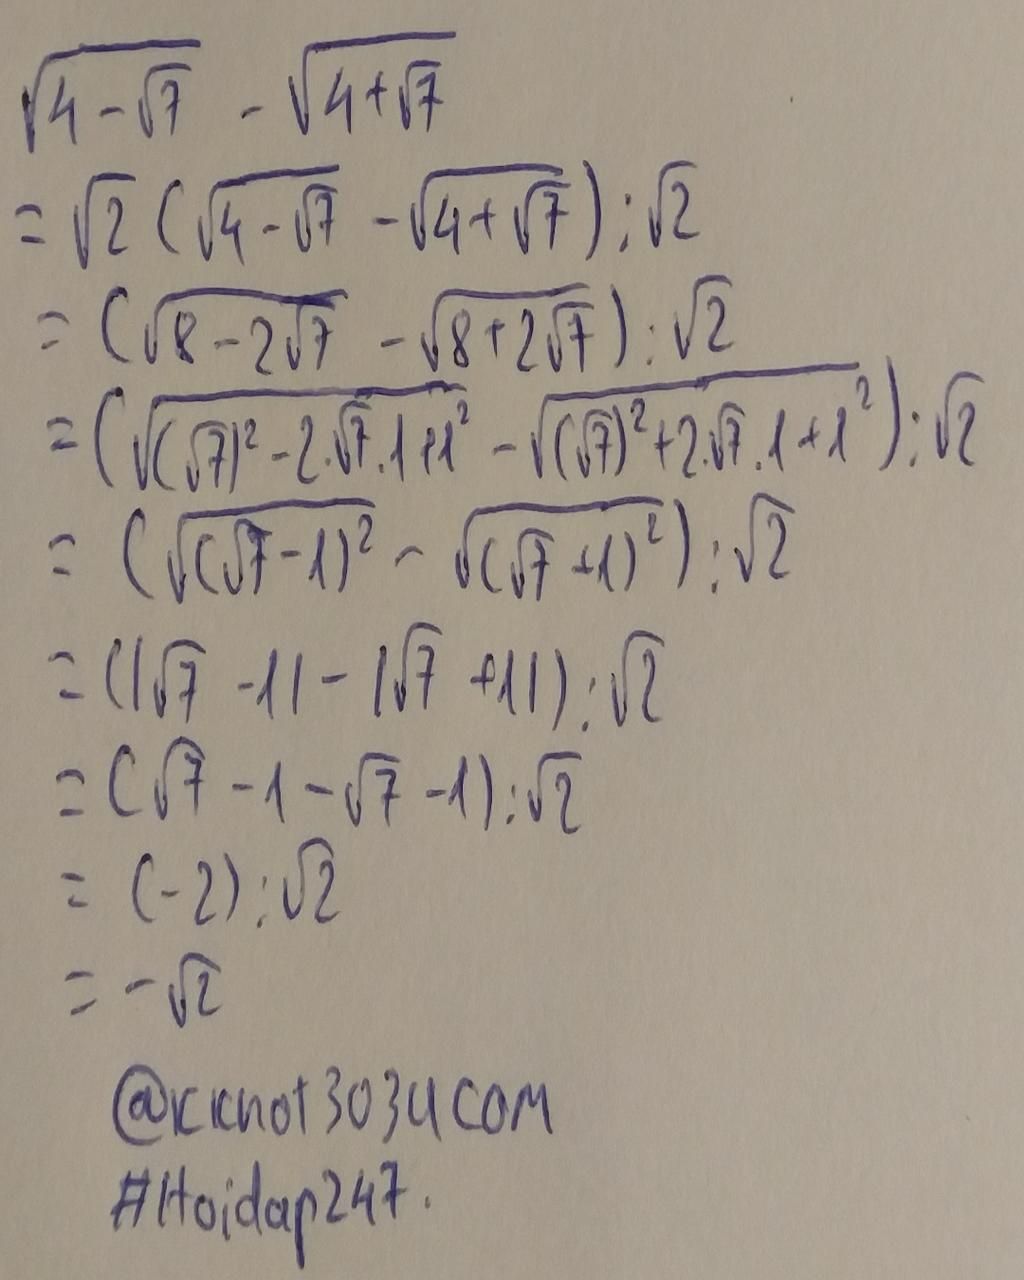 √(4-√7) - √(4+√7)
= √2 (√(4-√7) - √(4+√7)) : √2
= (√(8-2√7) - √(8+2√7)) : √2
= (√((√7)²-2.√7.1+1²) - √((√7)²+2.√7.1+1²)) : √2
= (√((√7-1)²) - √((√7+1)²)) : √2
= (|√7-1| - |√7+1|) : √2
= (√7-1-√7-1) : √2
= (-2) : √2
= -√2
@kknot3034com
#Hoidap247.